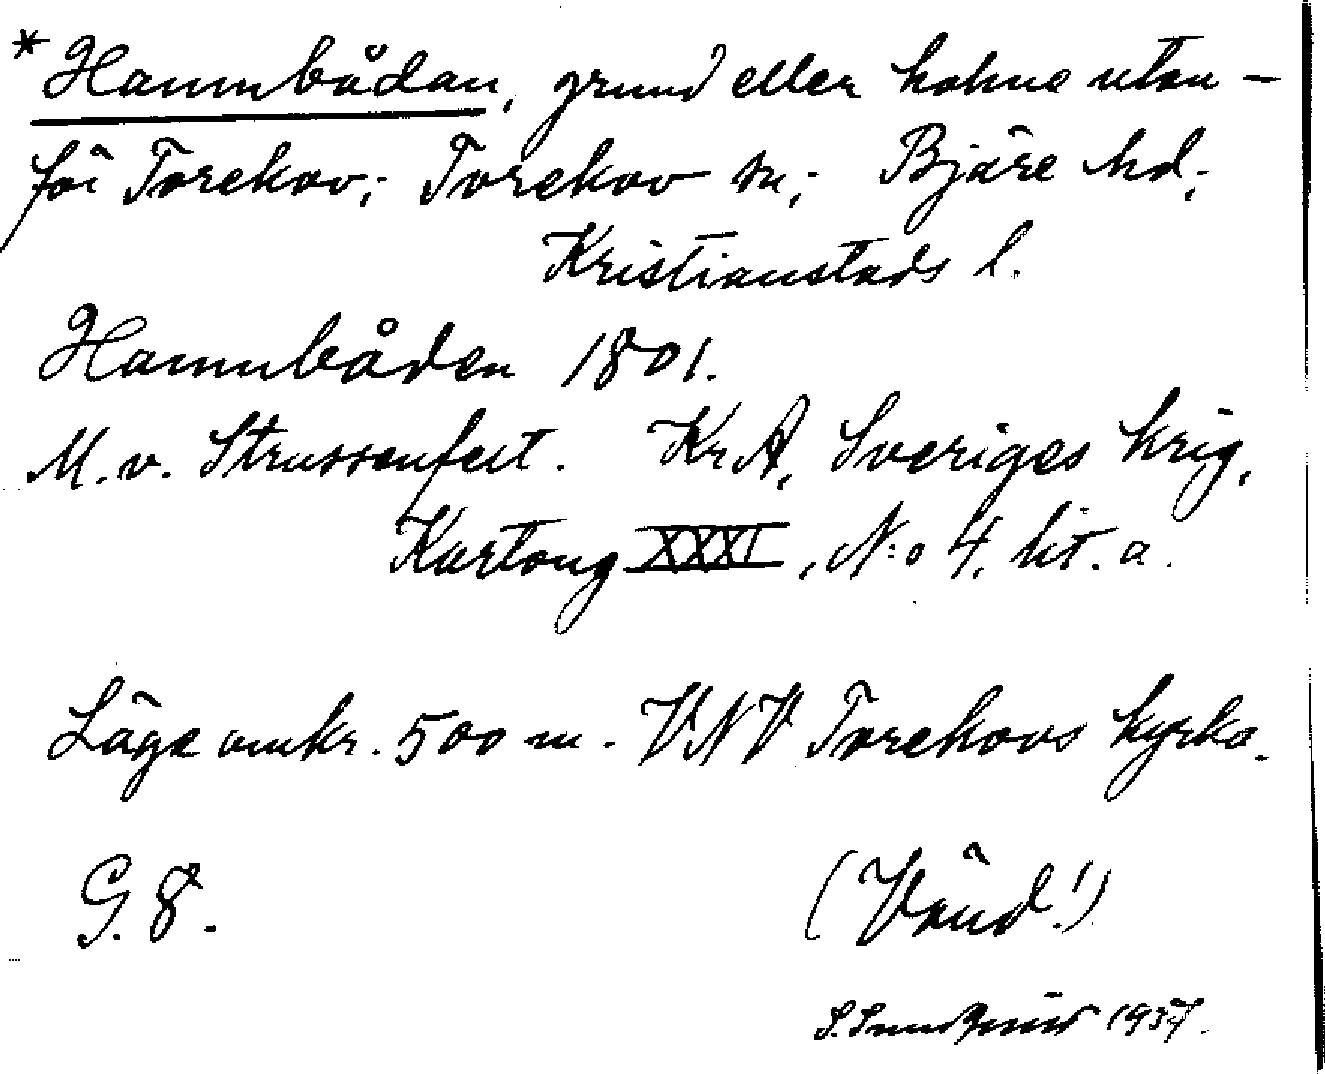 * Hamnbådan, grund eller holme utan-
för Torekov; Torekov sn; Bjäre hd;
Kristianstads l.
Hamnbåden 1801.
M. v. Strussenfelt. KrA, Sveriges krig,
Kartong XXXI, N:o 4, lit. a.
Läge omkr. 500 m. VNV Torekovs kyrka.
G. 8. (Vänd!)
1937.